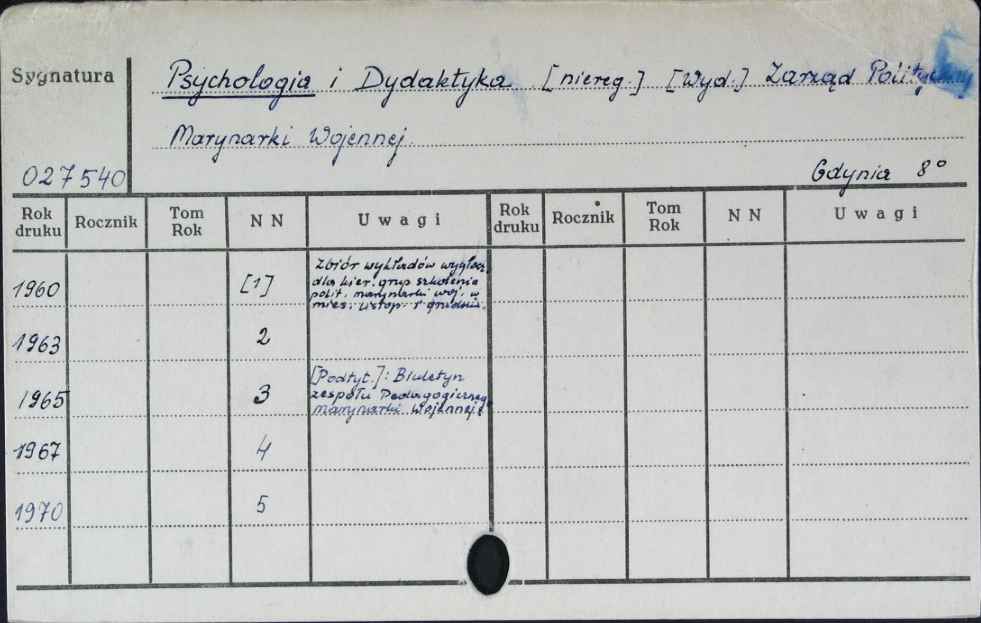 Sygnatura
Psychologia i Dydaktyka [niereg.] [Wyd.] Zarząd Polityczny
Marynarki Wojennej.
027540
Gdynia 8°
Rok druku Rocznik Tom Rok N N Uwagi Rok druku Rocznik Tom Rok N N Uwagi
1960 [1] Zbiór wykładów wygłosz.
dla kier. grup szkolenia
polit. marynarki woj. w
mies. listop. i grudniu.
1963 2
1965 3 [Podtyt.]: Biuletyn
zespołu Pedagogicznego
Marynarki Wojennej.
1967 4
1970 5